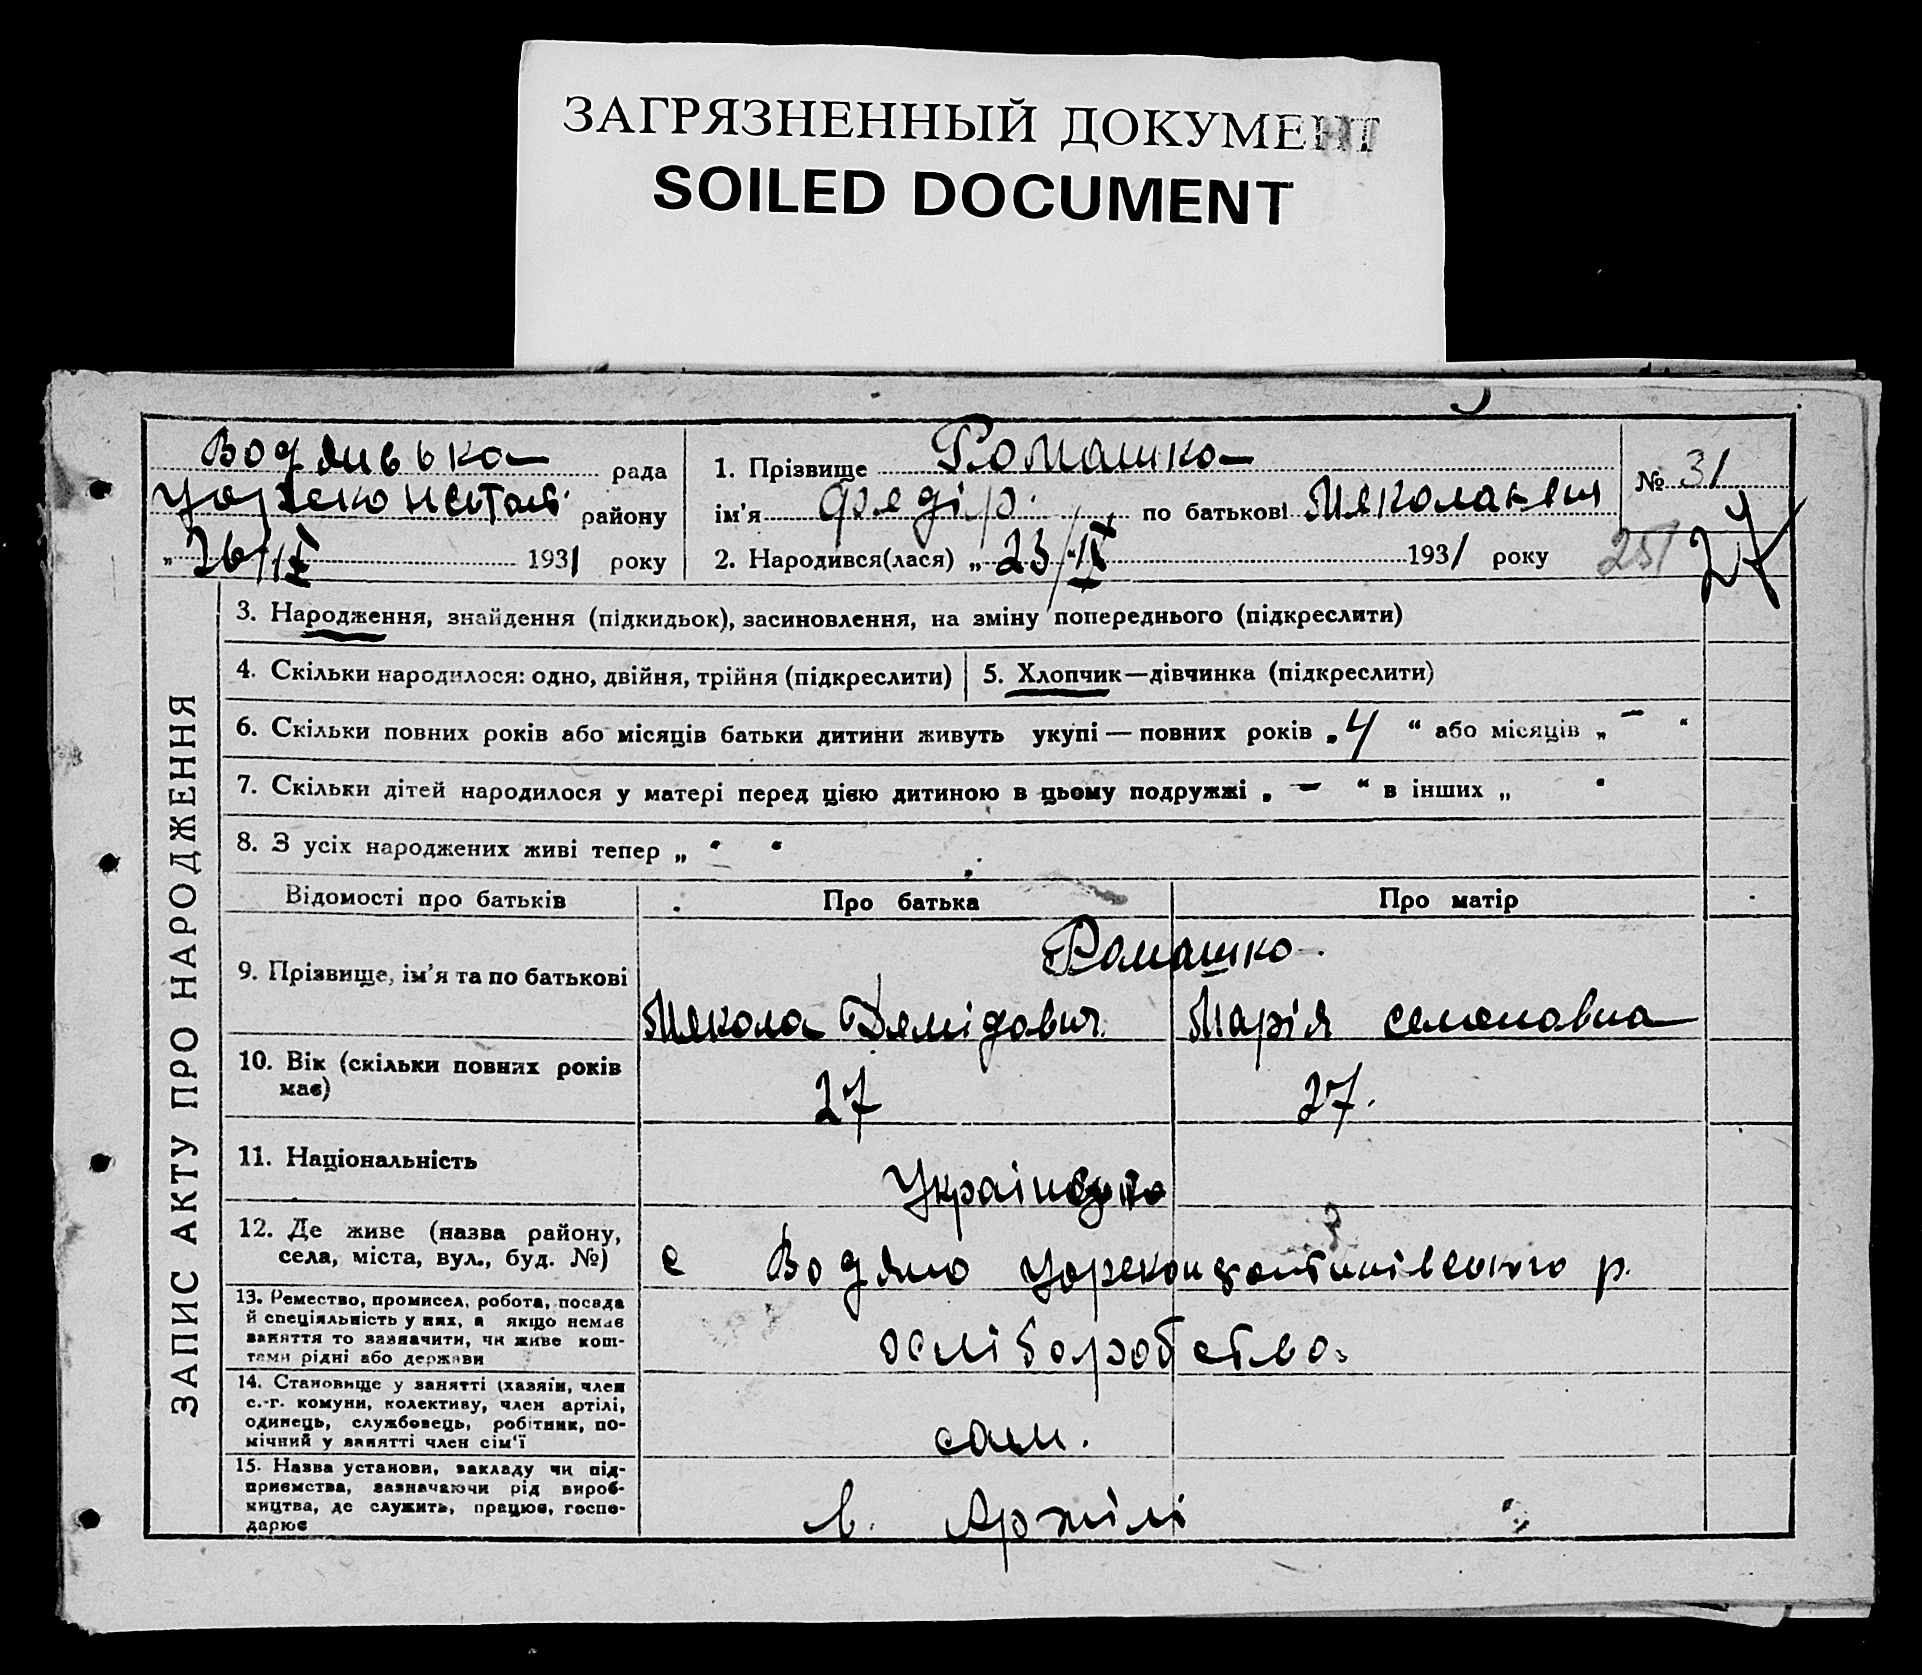 ЗАГРЯЗНЕННЫЙ ДОКУМЕНТ
SOILED DOCUMENT
Водянська рада
району
„ 26/IX 1931 року
1. Прізвище Ромашко
ім'я Федір по батькові Миколаєвич
2. Народився(лася) „ 23/IX 1931 року
№ 31
251
27
ЗАПИС АКТУ ПРО НАРОДЖЕННЯ
3. Народження, знайдення (підкидьок), засиновлення, на зміну попереднього (підкреслити)
4. Скільки народилося: одно, двійня, трійня (підкреслити)
5. Хлопчик—дівчинка (підкреслити)
6. Скільки повних років або місяців батьки дитини живуть укупі — повних років „ 4 “ або місяців „ — “
7. Скільки дітей народилося у матері перед цією дитиною в цьому подружжі „ — “ в інших „
8. З усіх народжених живі тепер „ “
Відомості про батьків
Про батька
Про матір
9. Прізвище, ім'я та по батькові
Ромашко
Микола Демідович
Марія Семеновна
10. Вік (скільки повних років
має)
27
27.
11. Національність
12. Де живе (назва району,
села, міста, вул., буд. №)
с Водяно р.
13. Ремество, промисел, робота, посада
й спеціяльність у них, а якщо немає
заняття то зазначити, чи живе кош-
тами рідні або держави
14. Становище у занятті (хазяїн, член
с.-г. комуни, колективу, член артілі,
одинець, службовець, робітник, по-
мічний у занятті член сім'ї
сам.
15. Назва установи, закладу чи під-
приємства, зазначаючи рід вироб-
ництва, де служить, працює, госпо-
дарює
в. Артілі